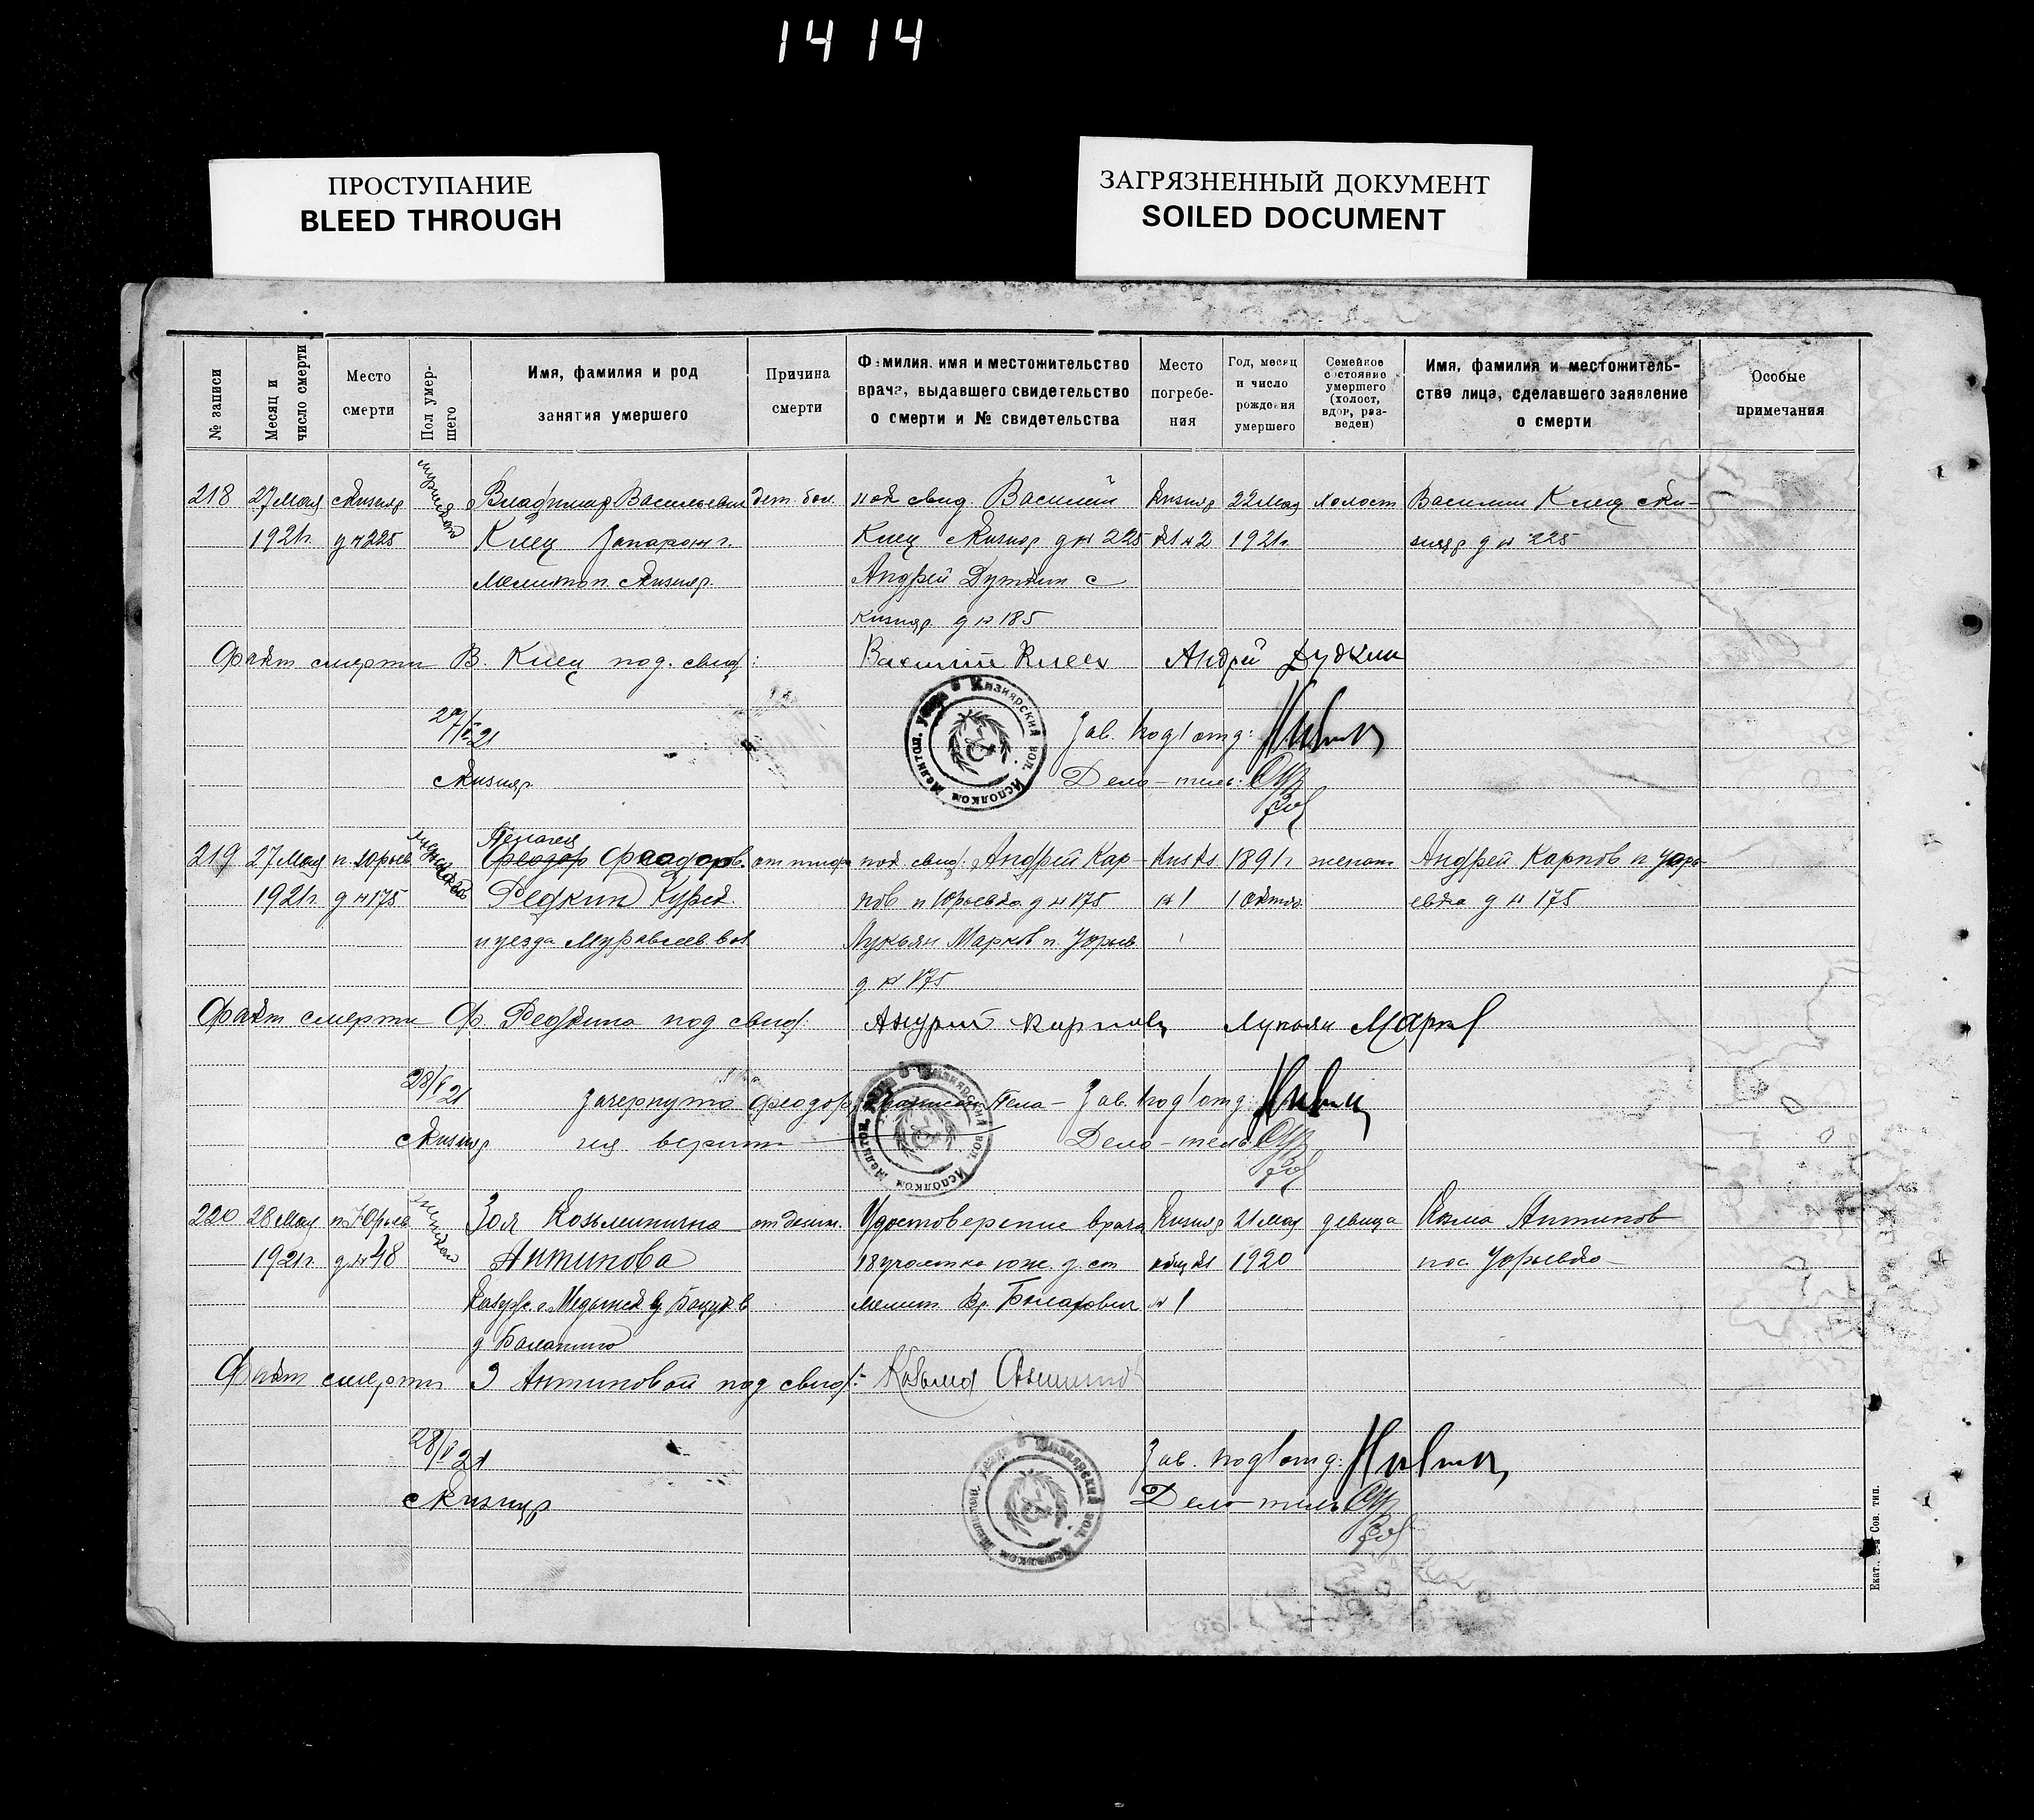 1414
ПРОСТУПАНИЕ
BLEED THROUGH
ЗАГРЯЗНЕННЫЙ ДОКУМЕНТ
SOILED DOCUMENT
№ записи
Месяц и число смерти
Место смерти
Пол умер-шего
Имя, фамилия и род занятия умершего
Причина смерти
Фамилия, имя и местожительство врача, выдавшего свидетельство о смерти и № свидетельства
Место погребе-ния
Год, месяц и число рождения умершего
Семейное состояние умершего (холост, вдов, раз-веден)
Имя, фамилия и местожитель-ство лица, сделавшего заявление о смерти
Особые примечания
218 27 Мая с Кизияр мужской Владимир Васильевич дет. бол. под свид. Василий Кизияр 22 Мая холост Василий Клец с Ки-
1921 г. д № 225 Клец Запарож г. Клец с Кизияр д № 225 № 2 1921 г. зияр д № 225
Мелитоп. с Кизияр. Андрей Дудкин с
Кизияр. д № 185
Факт смерти В. Клец под. свид: Василий Клец Андрей Дудкин
27/V 21 Зав. подотд:
с Кизияр Дело-тель:
Мелитоп. уезда Кизиярский вол. Исполком
Пелагея
219 27 Мая п. Юрьев мужской Феодор Феодоров. от тифа под. свид. Андрей Кар- 1891 г женат Андрей Карпов п Юрь-
1921 г. д № 175 Редкин Курск. пов п Юрьевка д № 175 № 1 1 Октяб. евка д № 175
и уезда Муравлев. вол Лукьян Марков п. Юрьев
д № 175
Факт смерти Ф. Редкина под свид: Андрей Карпов Лукьян Марков
28/V 21 Зачеркнуто Феодор Пела- Зав. подотд:
с Кизияр гея верить Дело-тель
Мелитоп. уезда Кизиярский вол. Исполком
220 28 Мая п. Юрьев женской Зоя Козьминична Удостоверение врача Кизияр 21 Мая девица Козма Антипов
1921 г. д № 48 Антипова 18 участка юж. д. ст 1920 пос Юрьевка
мелит. Вр. № 1
Факт смерти З Антиповой под свид:
28/V 21 Зав. подотд:
с Кизияр Дело-тель
Мелитоп. уезда Кизиярский вол. Исполком
Екат., 2-я Сов. тип.